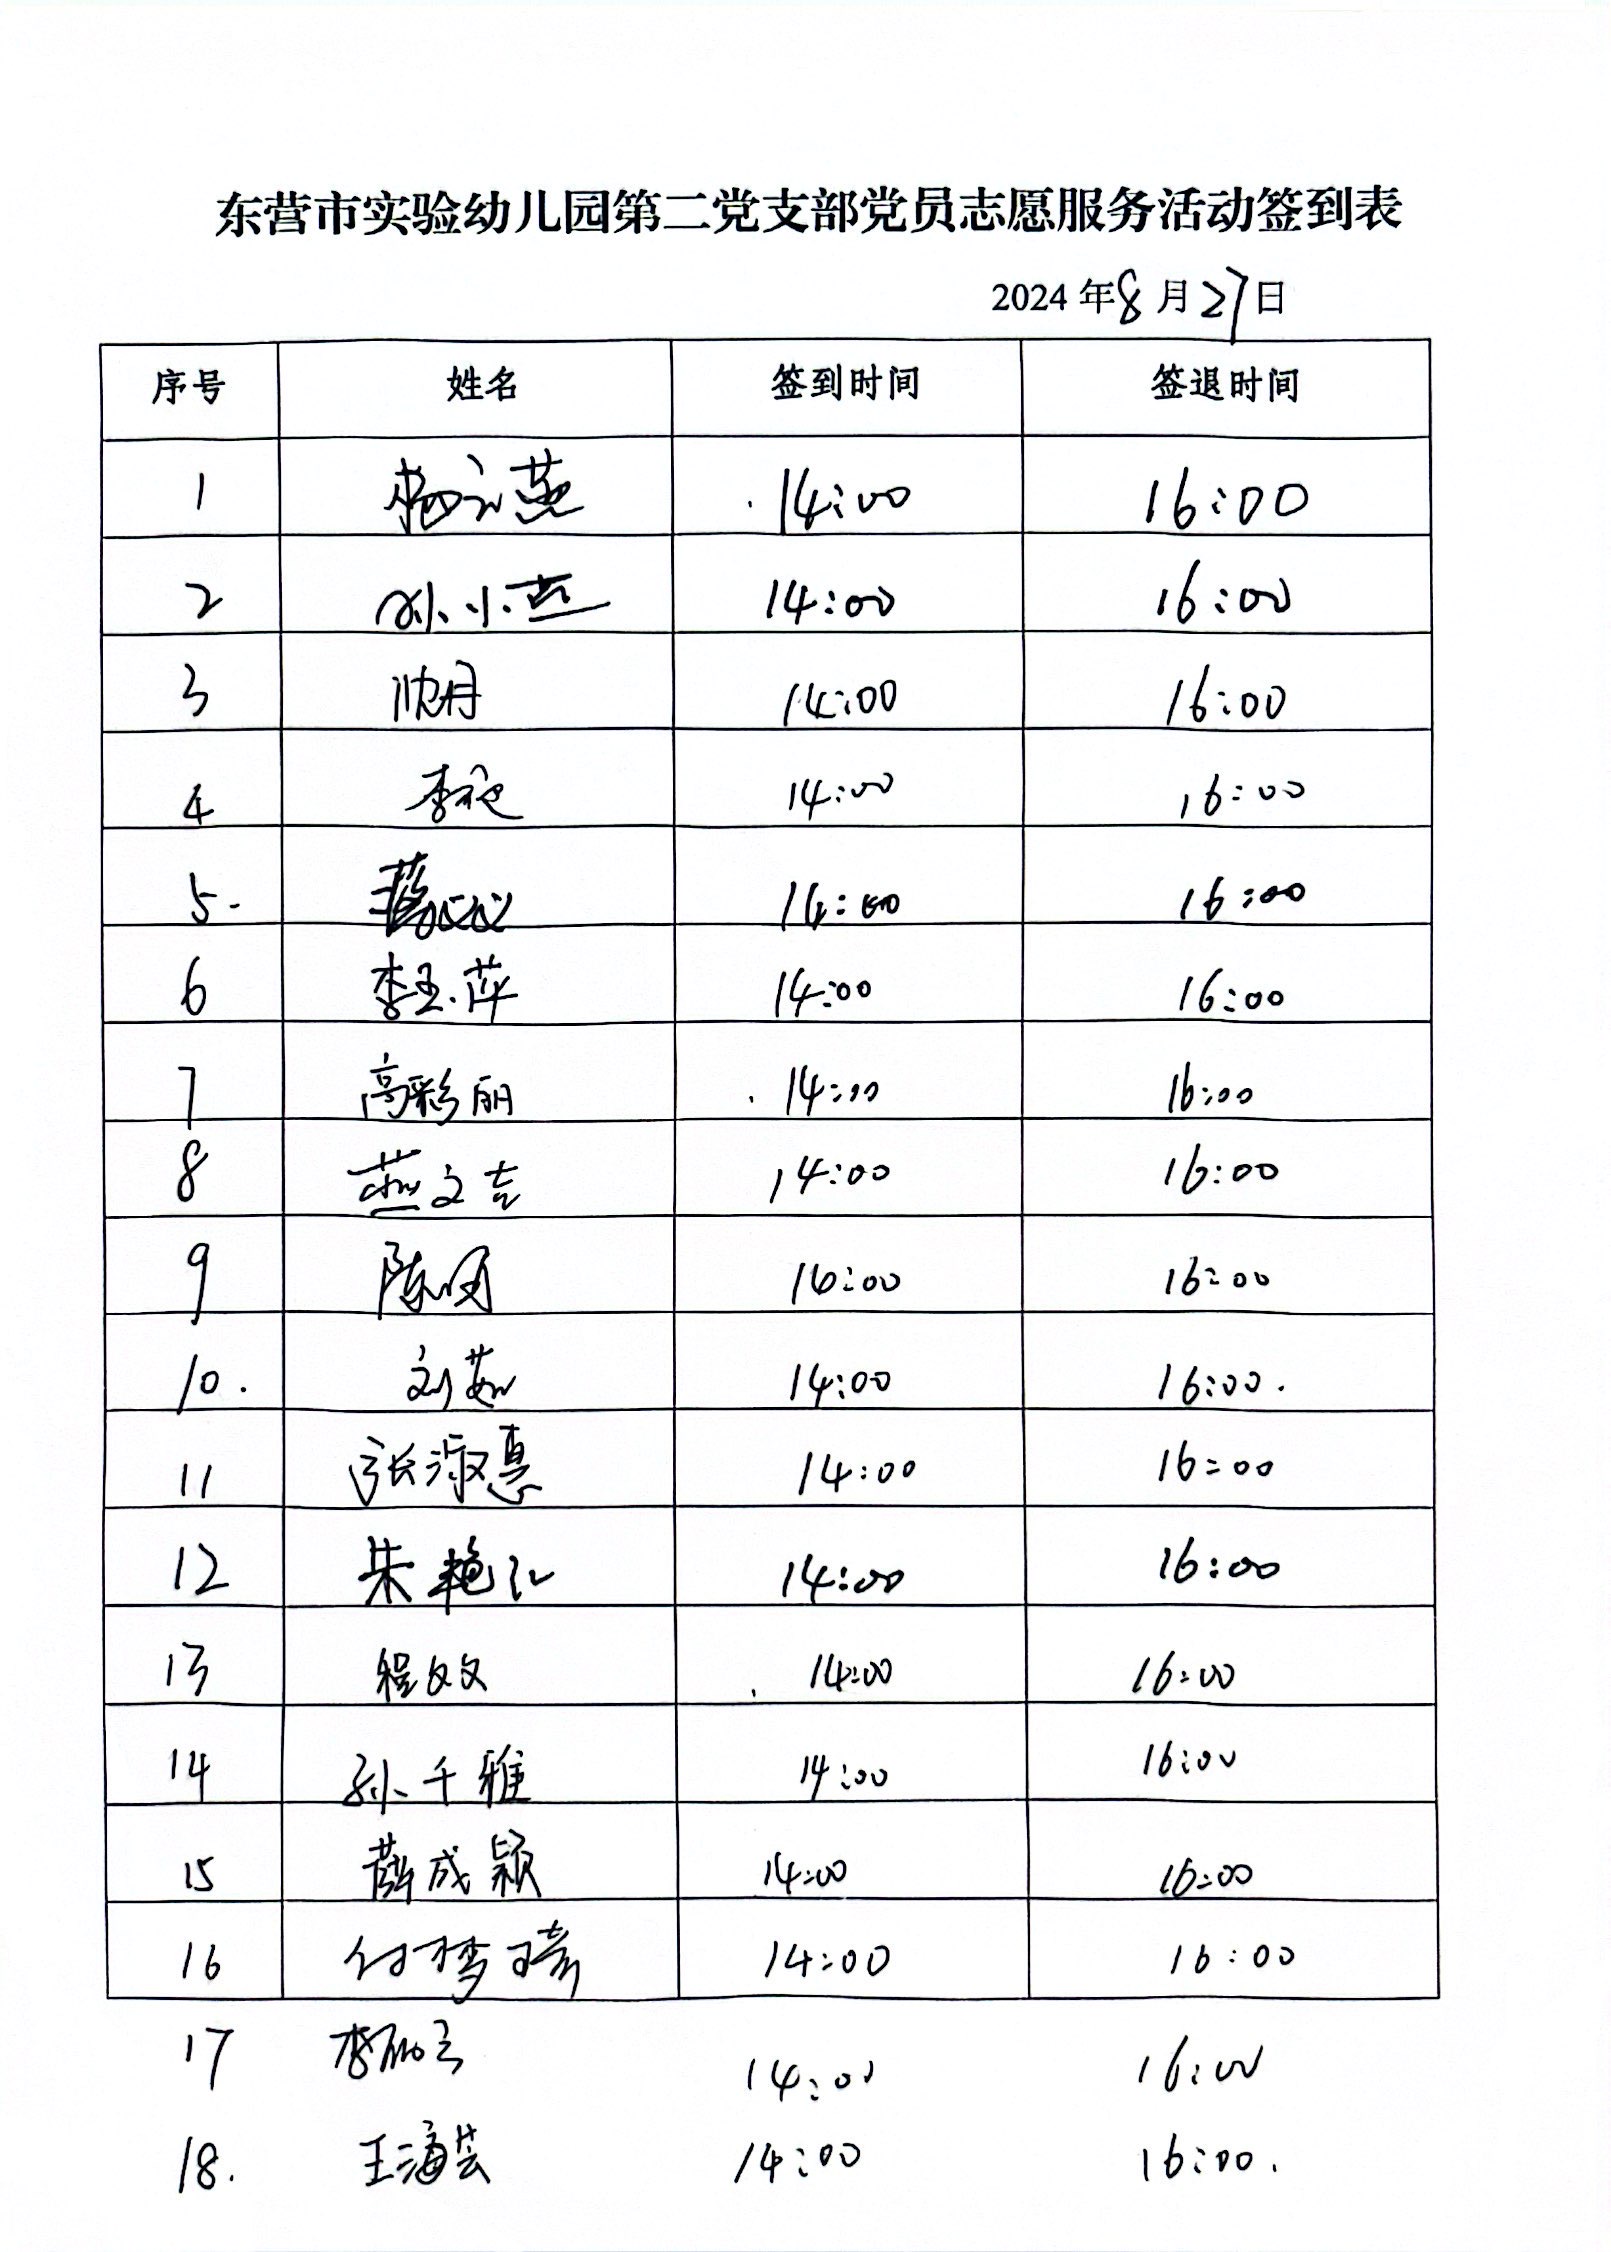 东营市实验幼儿园第二党支部党员志愿服务活动签到表
2024年8月27日
序号 姓名 签到时间 签退时间
1 燕 14:00 16:00
2 孙小燕 14:00 16:00
3 沈月 14:00 16:00
4 李 14:00 16:00
5. 14:00 16:00
6 李玉萍 14:00 16:00
7 高彩丽 14:00 16:00
8 燕文吉 14:00 16:00
9 陈 14:00 16:00
10. 刘茹 14:00 16:00.
11 张淑惠 14:00 16:00
12 朱艳红 14:00 16:00
13 程文文 14:00 16:00
14 孙千雅 14:00 16:00
15 薛成颖 14:00 16:00
16 付梦琦 14:00 16:00
17 李 14:00 16:00
18. 王海芸 14:00 16:00.